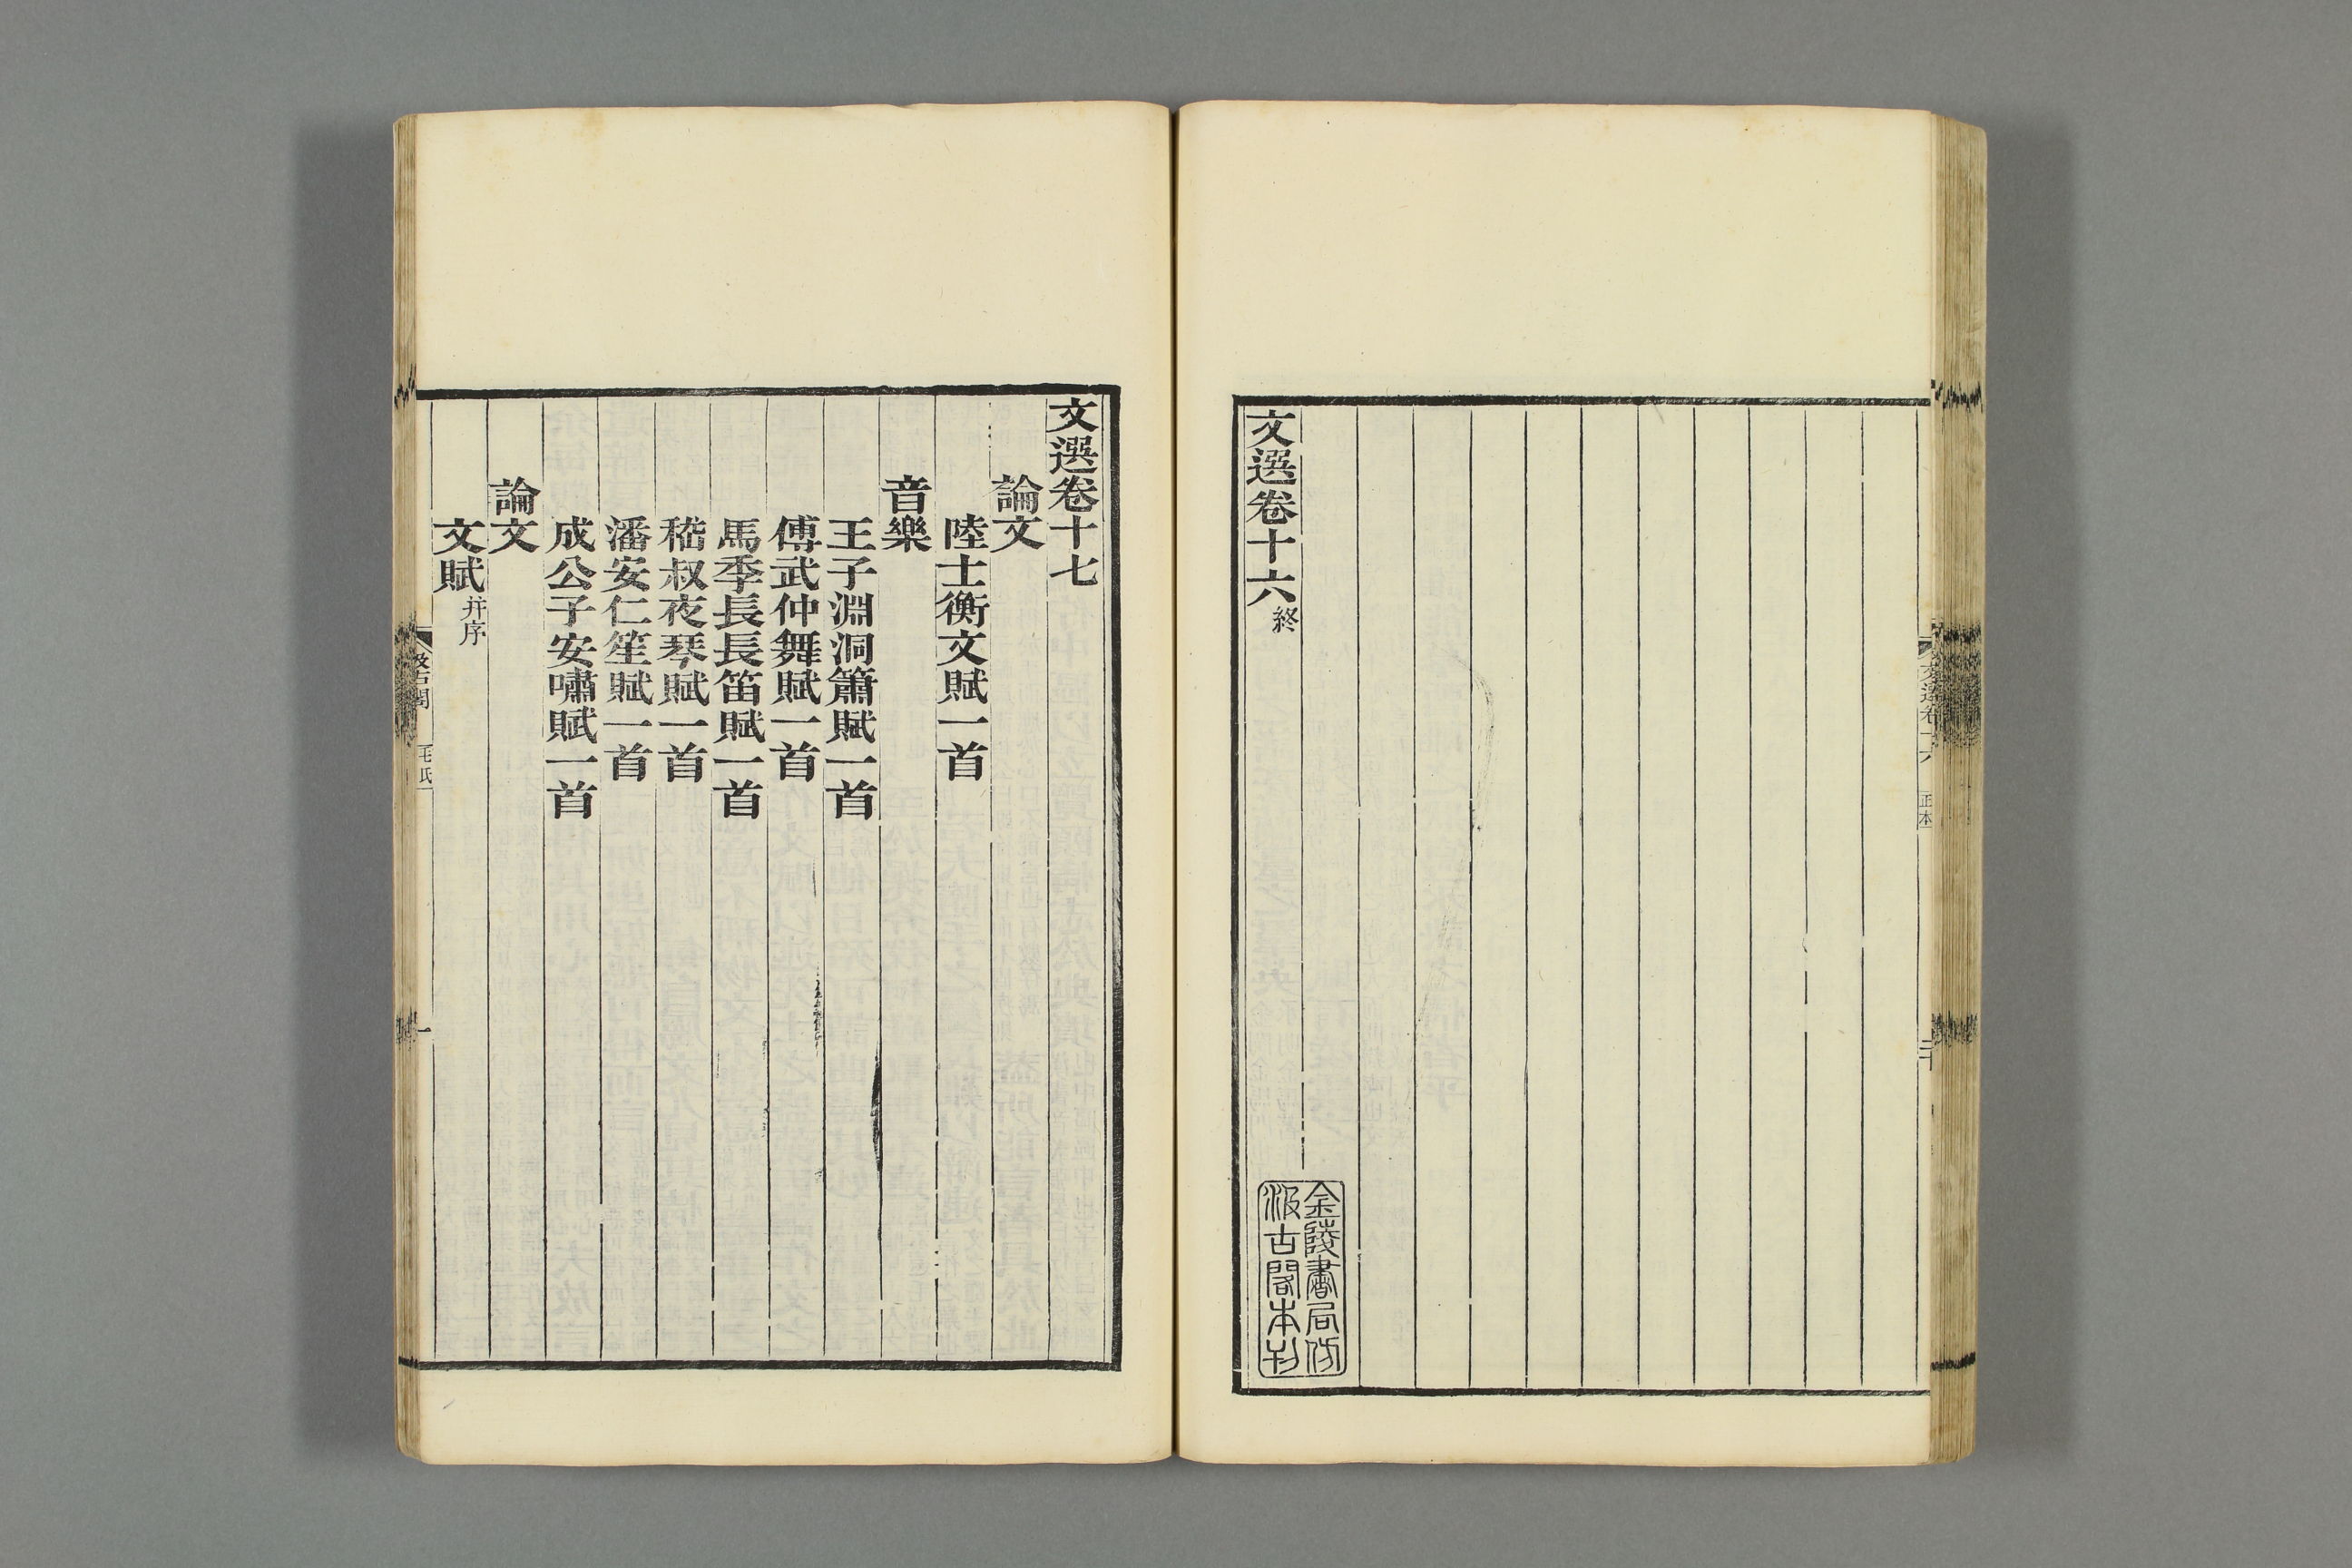 文選卷十六終
金陵書局仿
汲古閣本刊
文選卷十七
論文
陸士衡文賦一首
音樂
王子淵洞簫賦一首
傅武仲舞賦一首
馬季長長笛賦一首
嵇叔夜琴賦一首
潘安仁笙賦一首
成公子安嘯賦一首
論文
文賦并序